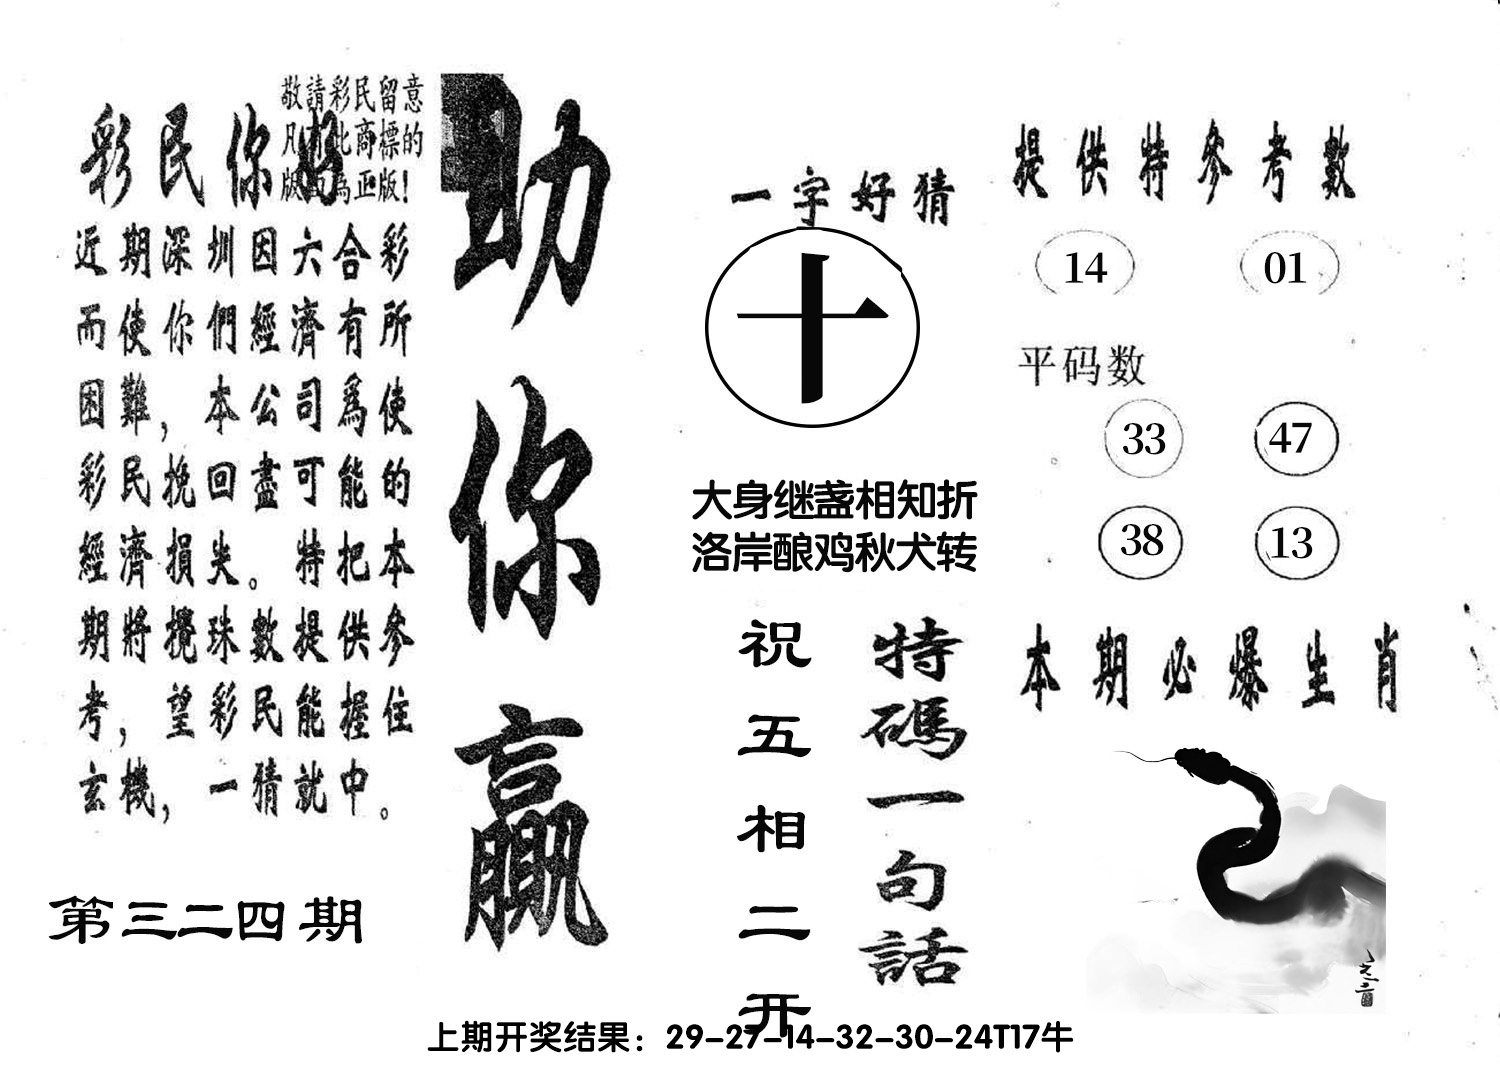 敬請彩民留意
凡有此商標的
版面為正版！
彩民你好
近期深圳因六合彩
而使你們經濟有所
困難，本公司爲使
彩民挽回盡可能的
經濟損失。特把本
期將攪珠數提供參
考，望彩民能握住
玄機，一猜就中。
第三二四期
助你贏
一字好猜
十
大身继盏相知折
洛岸酿鸡秋犬转
特碼一句話
祝五相二开
提供特參考數
14 01
平码数
33 47
38 13
本期必爆生肖
上期开奖结果：29-27-14-32-30-24T17牛